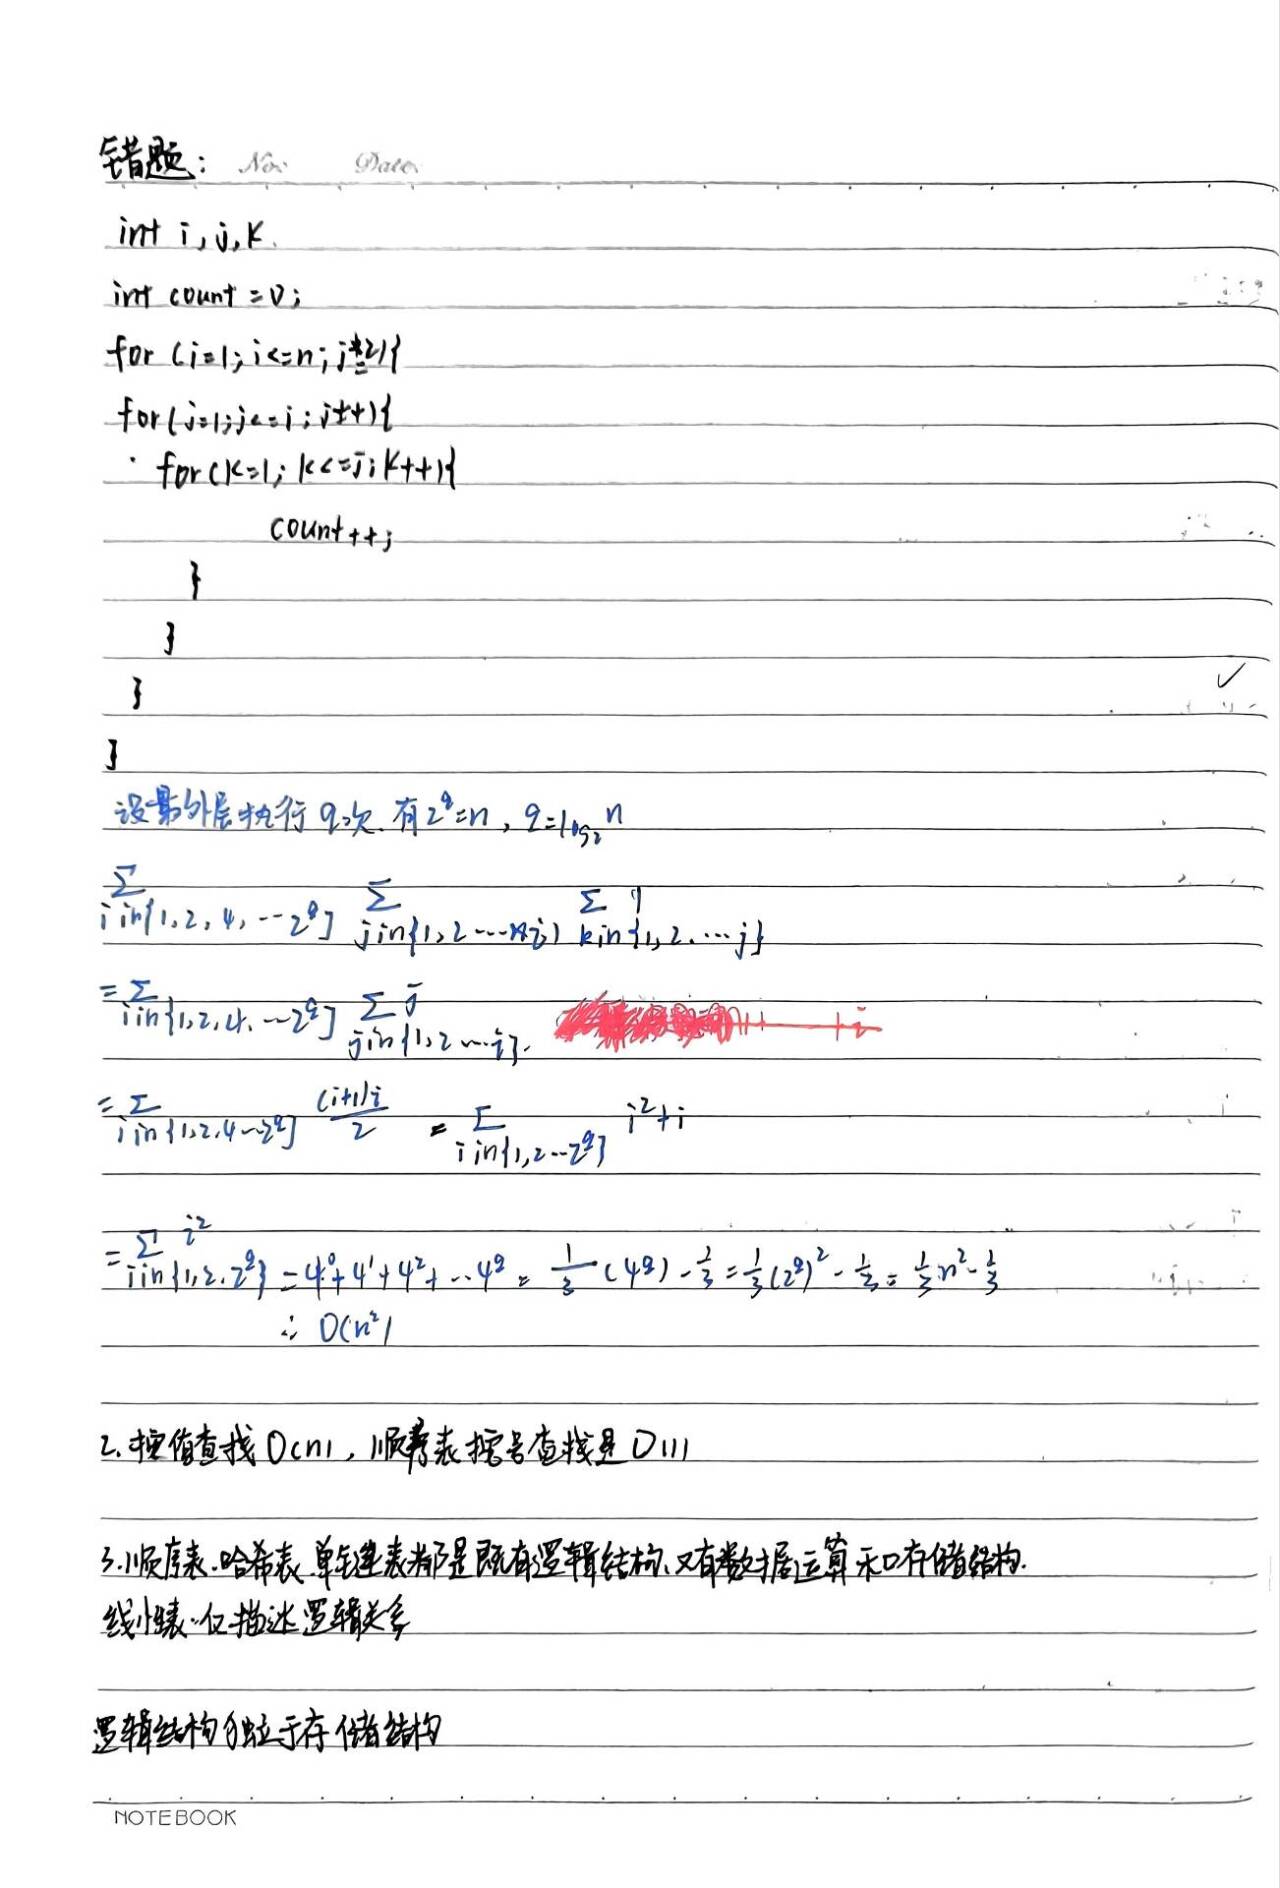 错题: No. Date.
int i, j, k.
int count = 0;
for (i=1; i<=n; i*=2){
for (j=1; j<=i; j++){
for (k=1; k<=j; k++){
count++;
}
}
}
}
设最外层执行q次. 有2^q=n, q=log₂n
∑ i in{1,2,4,…2^q} ∑ j in{1,2……i} ∑ k in{1,2.…j} 1
=∑ i in{1,2,4.…2^q} ∑ j in{1,2…i} j
=∑ i in{1,2,4…2^q} (i+1)i/2 = ∑ i in{1,2…2^q} i²+i
=∑ i in{1,2.2^q} i² = 4⁰+4¹+4²+…4^q = 1/3 (4^q) - 1/3 = 1/3(2^q)² - 1/3 = 1/3 n² - 1/3
∴ O(n²)
2. 按值查找O(n), 顺序表按号查找是O(1)
3. 顺序表.哈希表.单链表都是既有逻辑结构、又有数据运算和存储结构.
线性表.仅描述逻辑关系
逻辑结构独立于存储结构
NOTEBOOK